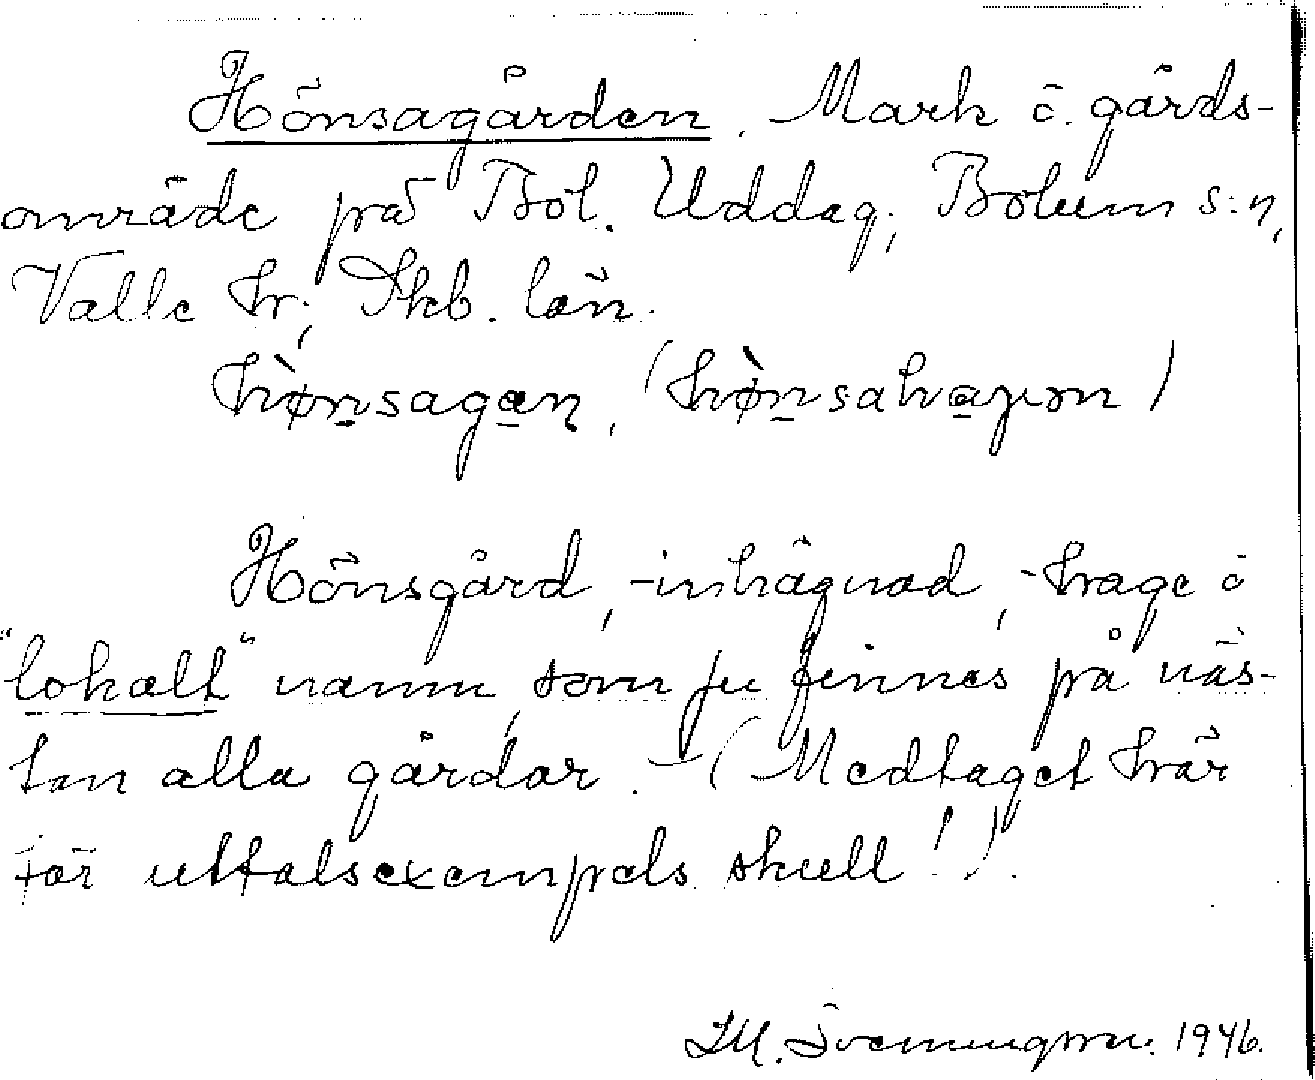 Hönsagården. Mark ö. gårds-
område på Böl. Uddag; Bolum s:n,
Valle hr; Skb. län.
Hönsgård, -inhägnad, -hage ö
"lokalt" namn, som ju finnes på näs-
tan alla gårdar. - (Medtaget här
för uttalsexempels skull!).
1946.